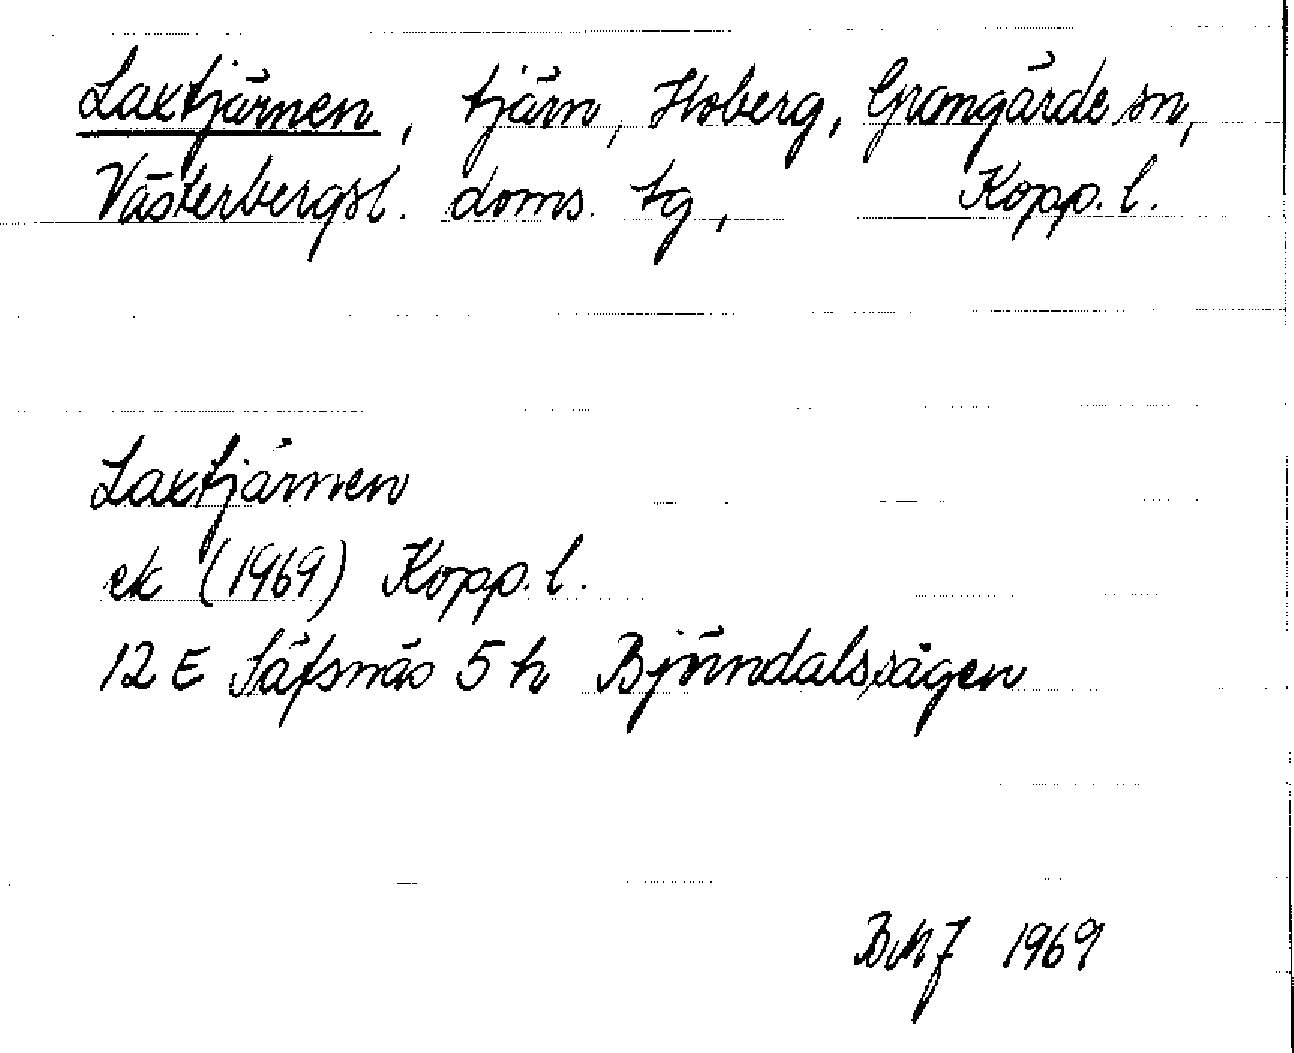 Laxtjärnen, tjärn, Hoberg, Grangärde sn,
Västerbergsl. doms. tg, Kopp. l.
Laxtjärnen
ek (1969) Kopp. l.
12 E Säfsnäs 5 h Björndalssågen
BMJ 1969